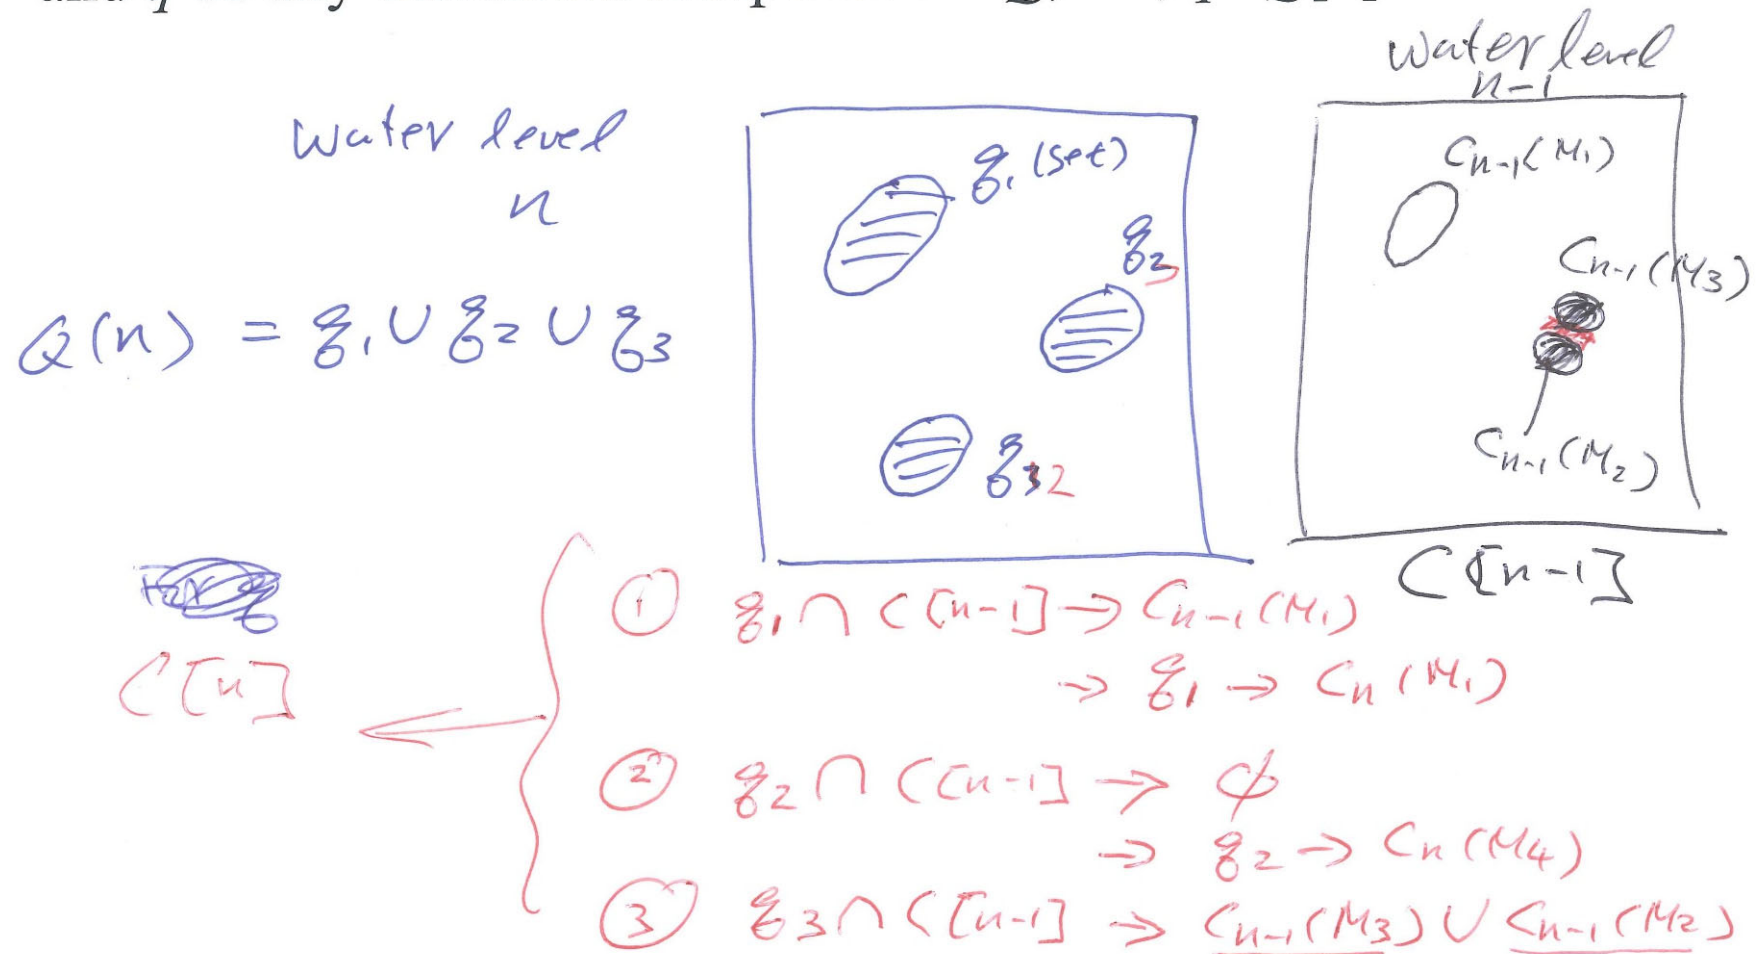 water level
n-1
water level
n
Q(n) = q₁ ∪ q₂ ∪ q₃
q₁ (set)
q₃
q₂
Cₙ₋₁(M₁)
Cₙ₋₁(M₃)
Cₙ₋₁(M₂)
C[n-1]
① q₁ ∩ C[n-1] → Cₙ₋₁(M₁)
→ q₁ → Cₙ(M₁)
C[n]
② q₂ ∩ C[n-1] → ϕ
→ q₂ → Cₙ(M₄)
③ q₃ ∩ C[n-1] → Cₙ₋₁(M₃) ∪ Cₙ₋₁(M₂)